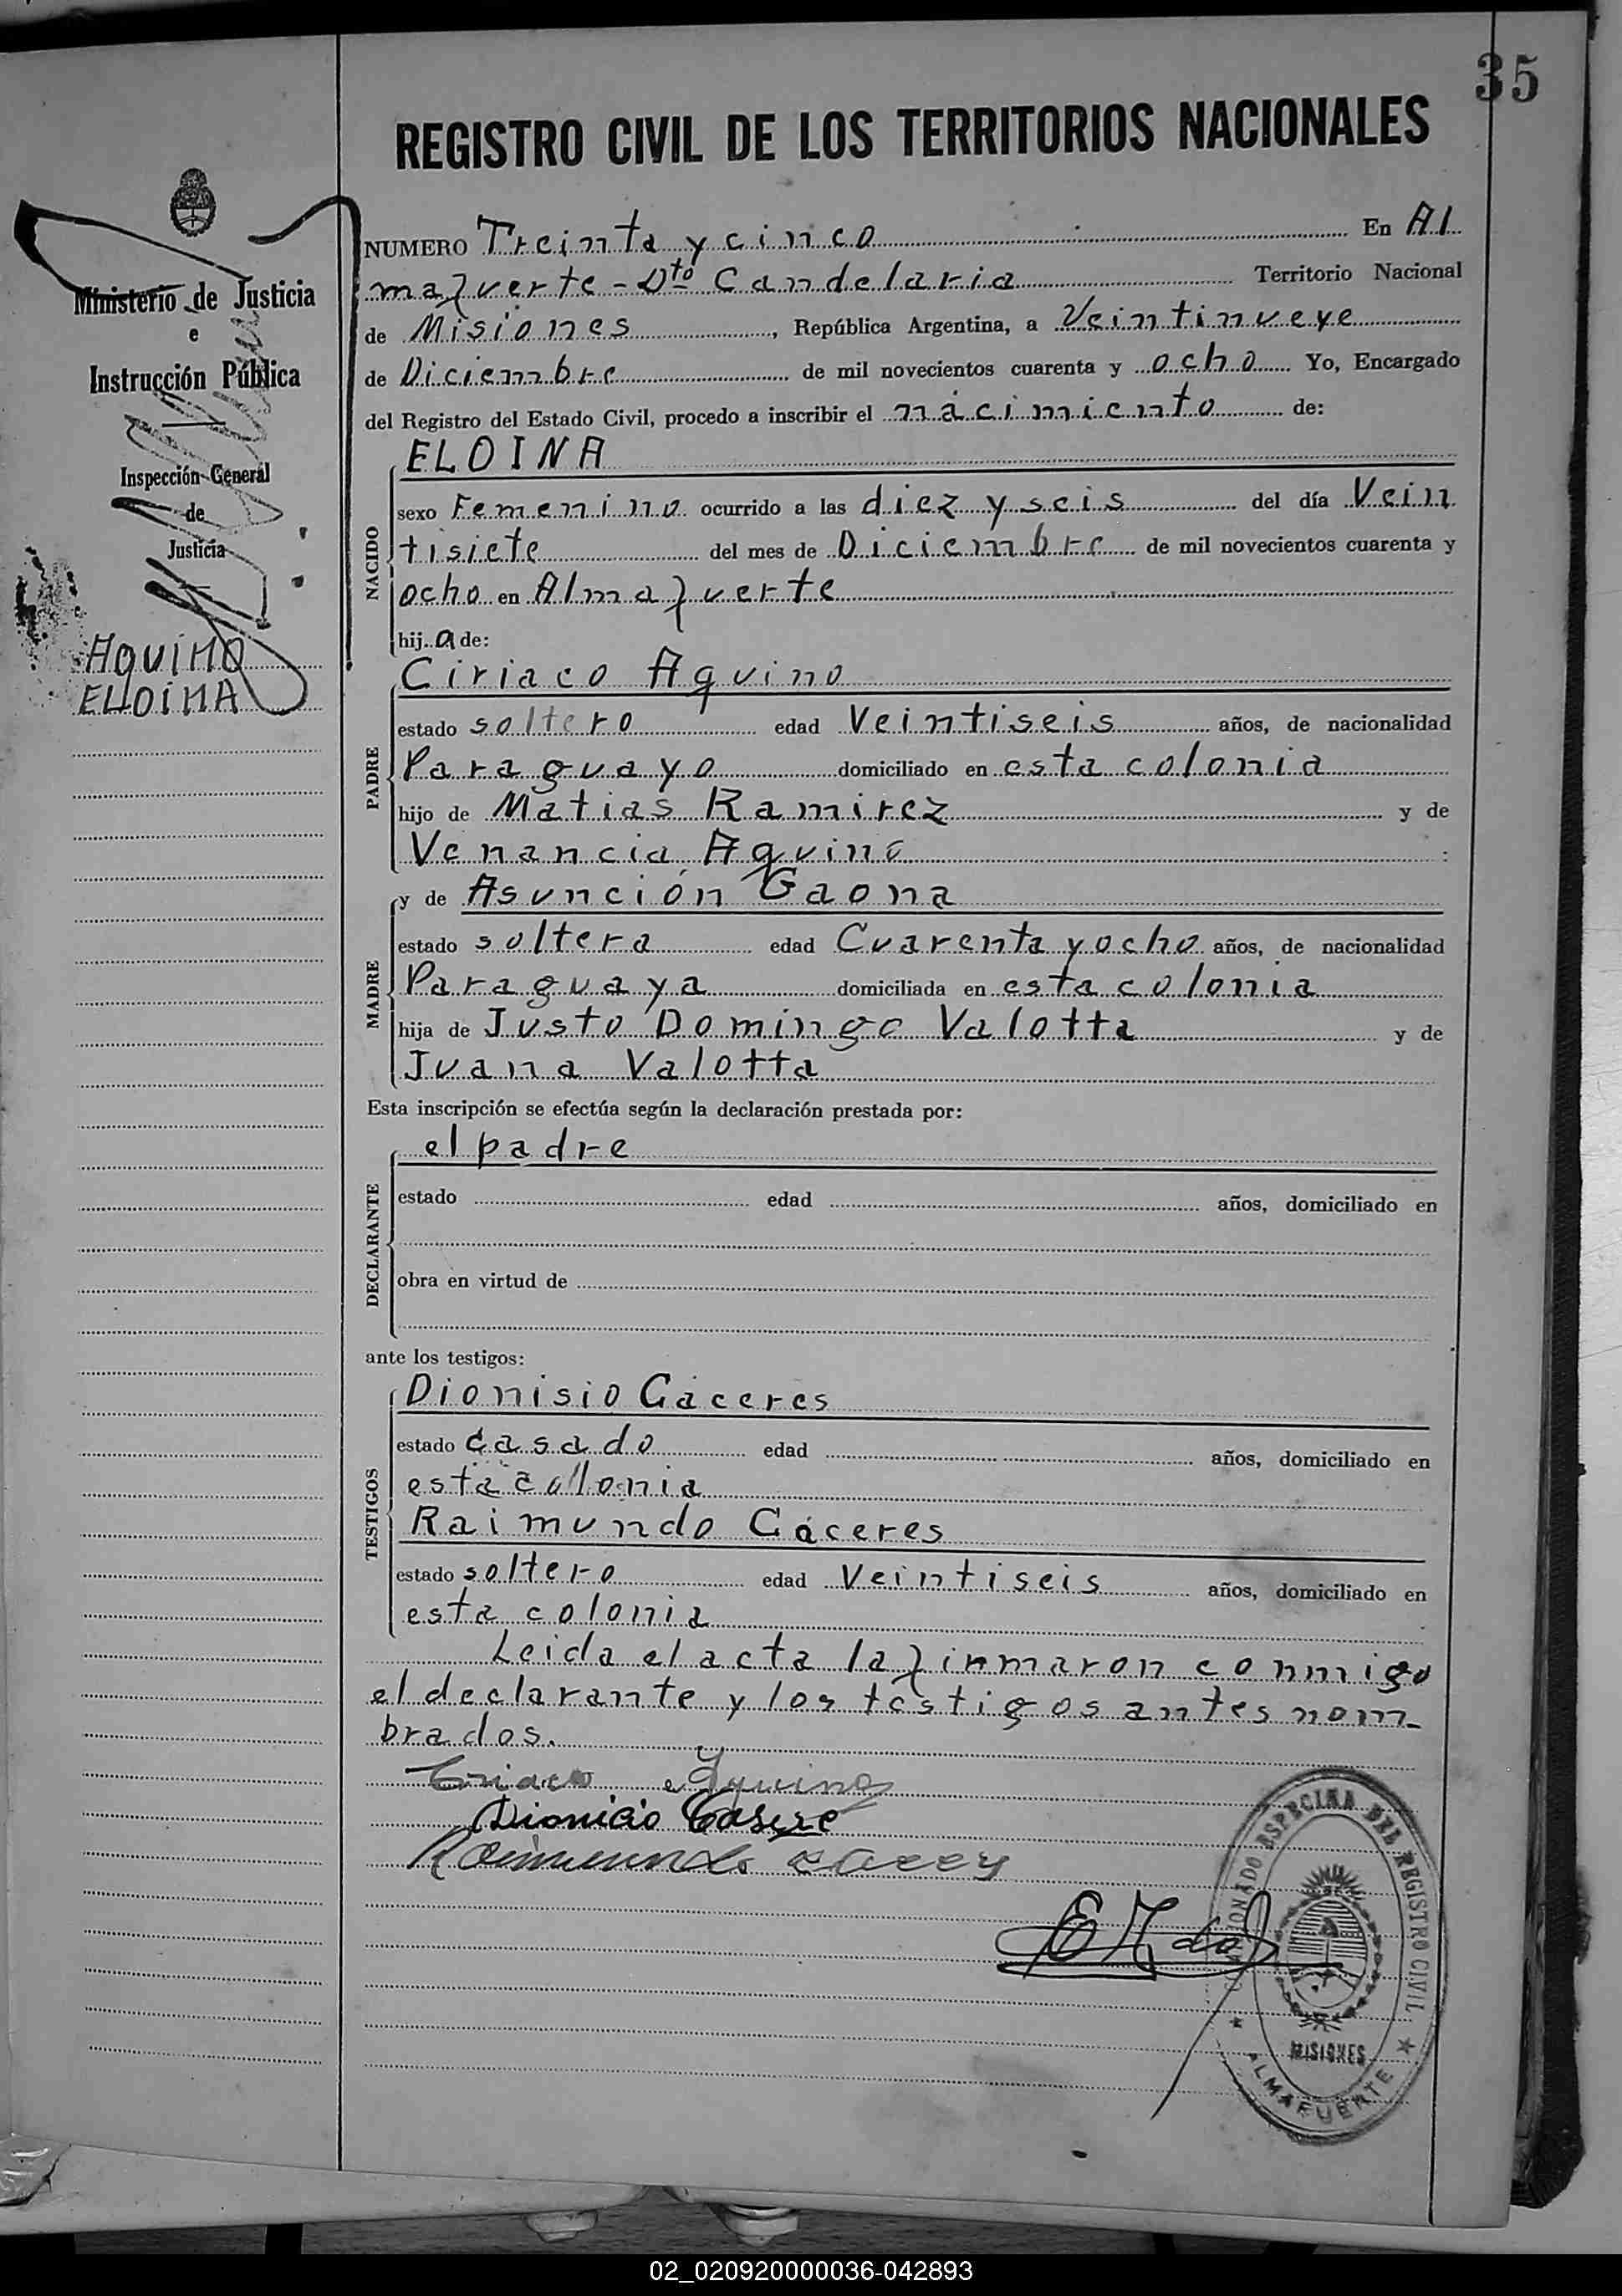 35
REGISTRO CIVIL DE LOS TERRITORIOS NACIONALES
Ministerio de Justicia
e
Instrucción Pública
Inspección General
de
Justicia
AQUINO
ELOINA
NUMERO Treinta y cinco En Al
mafuerte - Dto Candelaria Territorio Nacional
de Misiones, República Argentina, a Veintinueve
de Diciembre de mil novecientos cuarenta y ocho Yo, Encargado
del Registro del Estado Civil, procedo a inscribir el nacimiento de:
NACIDO
ELOINA
sexo Femenino ocurrido a las diez y seis del día Vein
tisiete del mes de Diciembre de mil novecientos cuarenta y
ocho en Almafuerte
hija de:
PADRE
Ciriaco Aquino
estado soltero edad Veintiseis años, de nacionalidad
Paraguayo domiciliado en esta colonia
hijo de Matias Ramirez y de
Venancia Aquino :
MADRE
y de Asunción Gaona
estado soltera edad Cuarenta y ocho años, de nacionalidad
Paraguaya domiciliada en esta colonia
hija de Justo Domingo Valotta y de
Juana Valotta
Esta inscripción se efectúa según la declaración prestada por:
DECLARANTE
el padre
estado edad años, domiciliado en
obra en virtud de
ante los testigos:
TESTIGOS
Dionisio Cáceres
estado casado edad años, domiciliado en
esta colonia
Raimundo Cáceres
estado soltero edad Veintiseis años, domiciliado en
esta colonia
Leida el acta la finmaron conmigo
el declarante y los testigos antes nom-
brados.
Ciriaco Aquino
Dionicio Casere
Raimundo
ESPECINA DEL REGISTRO CIVIL
MISIONES
ALMAFUERTE
02_020920000036-042893